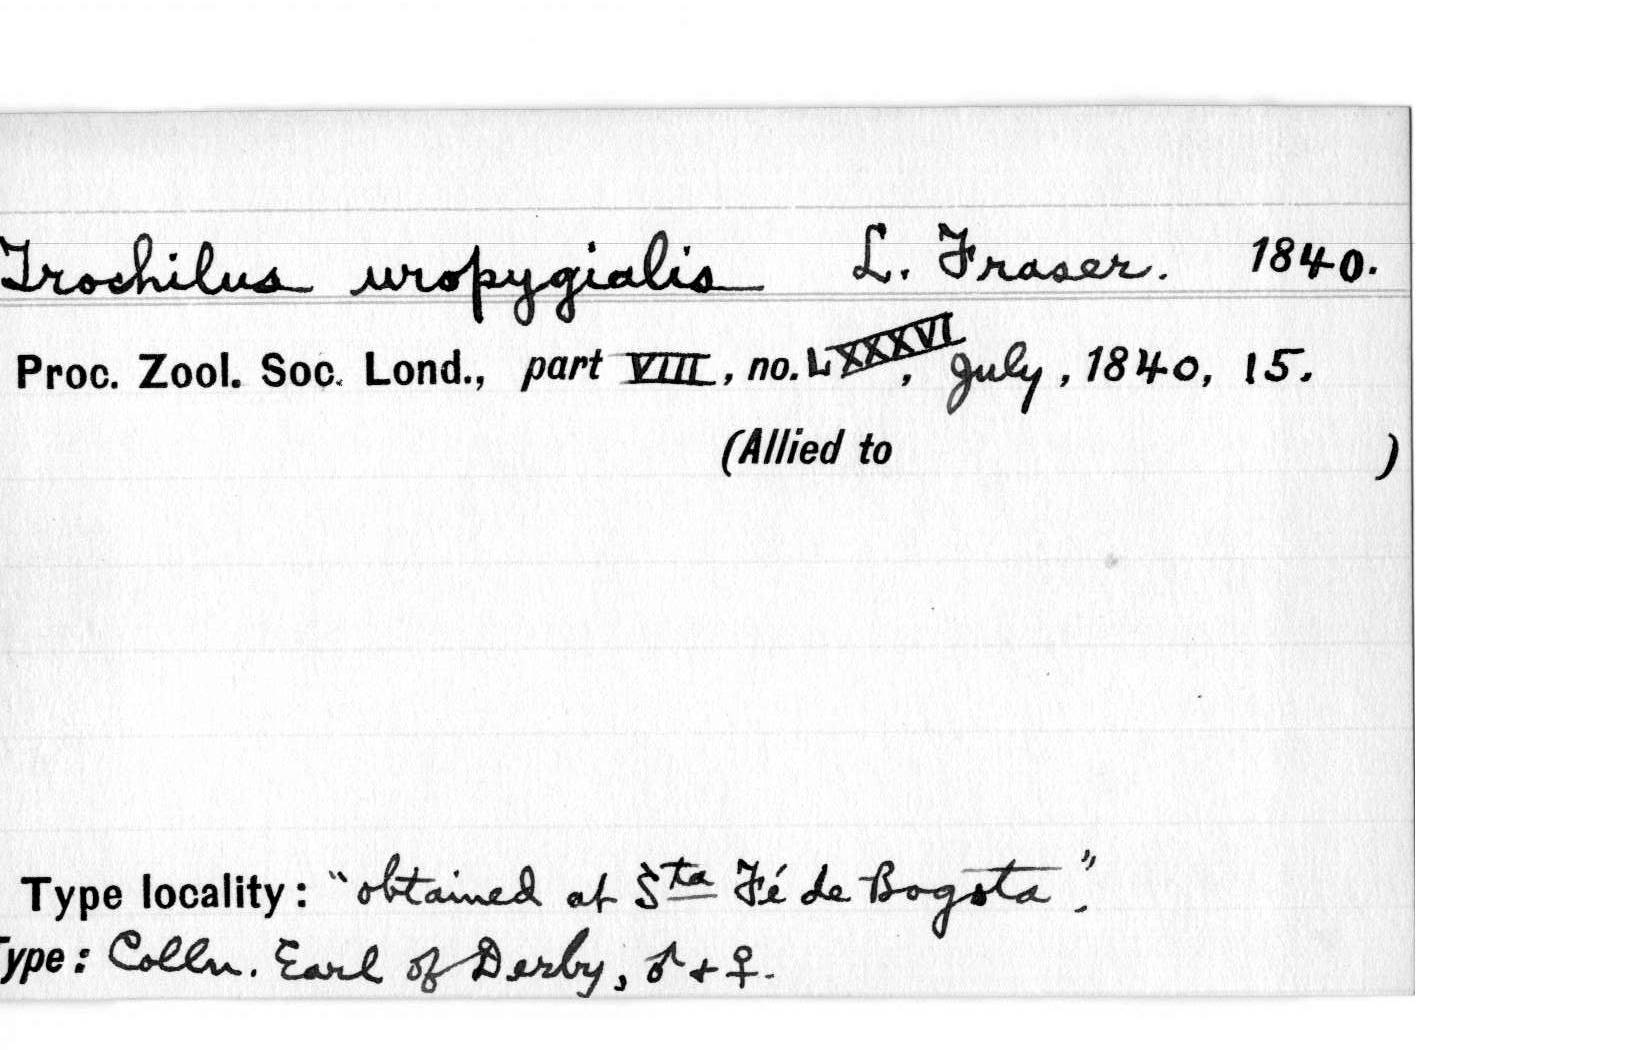 Trochilus uropygialis L. Fraser. 1840.
Proc. Zool. Soc. Lond., part VIII, no. LXXXVI, July, 1840, 15.
(Allied to )
Type locality: "obtained at Sta Fé de Bogota".
Type: Colln. Earl of Derby, ♂ + ♀.